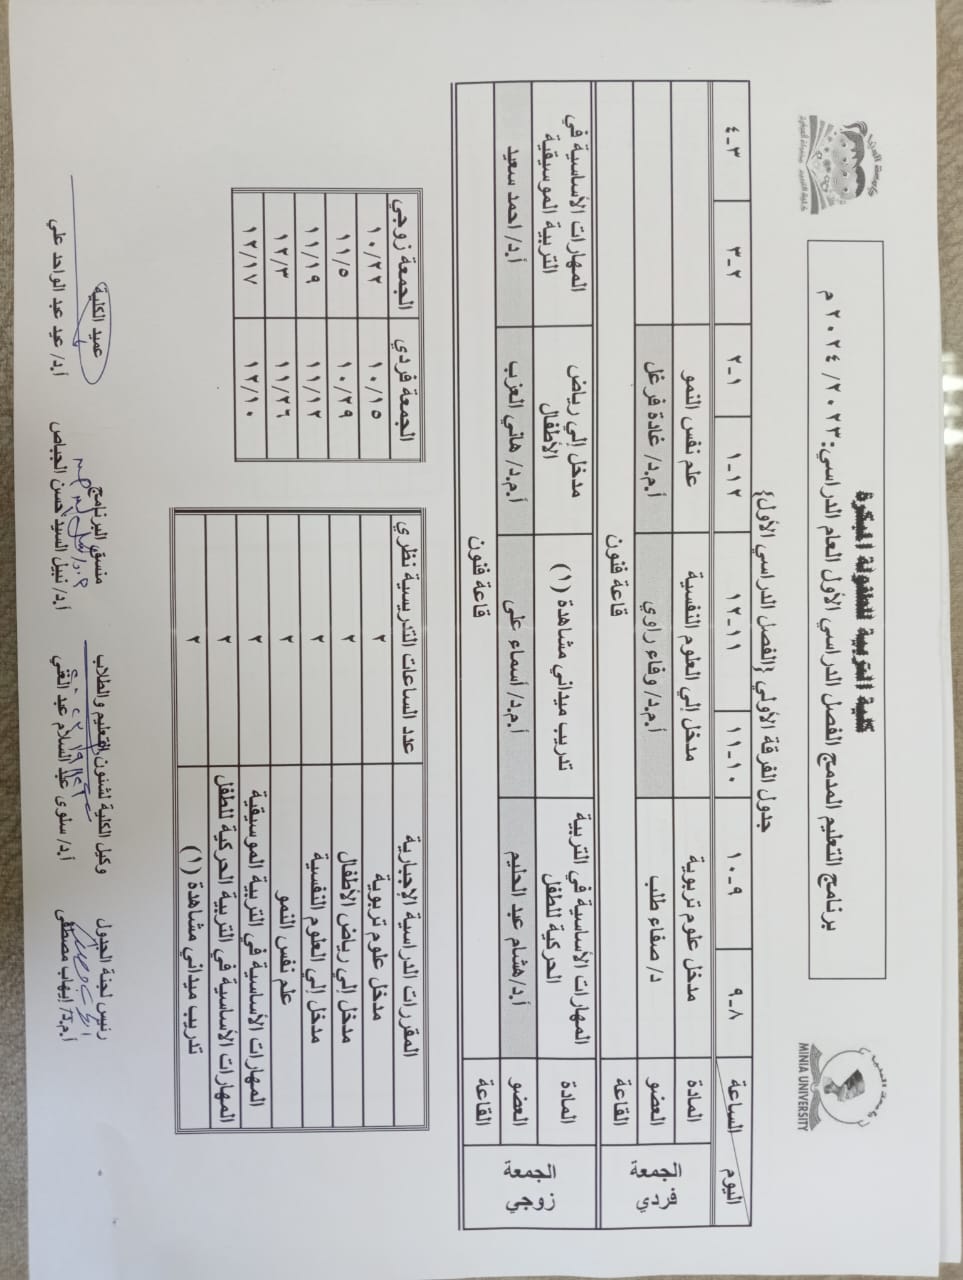 كلية التربية للطفولة المبكرة
برنامج التعليم المدمج الفصل الدراسي الأول العام الدراسي: ٢٠٢٣/ ٢٠٢٤ م
MINIA UNIVERSITY
جدول الفرقة الأولي {الفصل الدراسي الأول}
الساعة
اليوم
٨-٩
٩-١٠
١٠-١١
١١-١٢
١٢-١
١-٢
٢-٣
٣-٤
الجمعة
فردي
المادة
مدخل علوم تربوية
مدخل إلي العلوم النفسية
علم نفس النمو
العضو
د/ صفاء طلب
أ.م.د/ وفاء راوي
أ.م.د/ غادة فرغل
القاعة
قاعة فنون
الجمعة
زوجي
المادة
المهارات الأساسية في التربية
الحركية للطفل
تدريب ميداني مشاهدة (١)
مدخل إلي رياض
الأطفال
المهارات الأساسية في
التربية الموسيقية
العضو
أ.د/هشام عبد الحليم
أ.م.د/ أسماء على
أ.م.د/ هاني العزب
أ.د/ احمد سعيد
القاعة
قاعة فنون
المقررات الدراسية الإجبارية
عدد الساعات التدريسية نظري
مدخل علوم تربوية
٢
مدخل إلي رياض الأطفال
٢
مدخل إلي العلوم النفسية
٢
علم نفس النمو
٢
المهارات الأساسية في التربية الموسيقية
٢
المهارات الأساسية في التربية الحركية للطفل
٢
تدريب ميداني مشاهدة (١)
٢
الجمعة فردي
الجمعة زوجي
١٠/١٥
١٠/٢٢
١٠/٢٩
١١/٥
١١/١٢
١١/١٩
١١/٢٦
١٢/٣
١٢/١٠
١٢/١٧
رئيس لجنة الجدول
وكيل الكلية لشئون التعليم والطلاب
منسق البرنامج
عميد الكلية
أ.م.د/ إيهاب مصطفى
أ.د/ سلوى عبد السلام عبد الغني
أ.د/ نبيل السيد حسن الجباص
أ.د/ عيد عبد الواحد علي